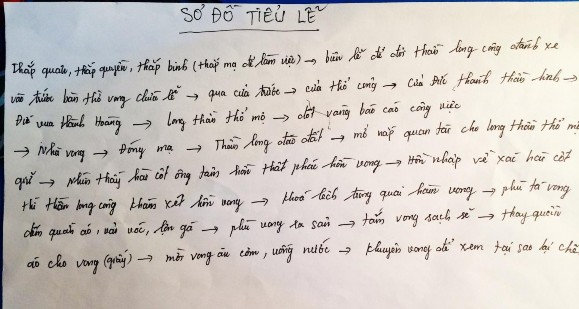 SƠ ĐỒ TIỂU LỄ
Thắp quan, thắp quyền, thắp binh (thắp mạ để làm việc) → biên lễ để đời thần long công đánh xe
vào trước bàn thờ vong chứa lễ → qua cửa trước → cửa thổ công → Của Đức thanh thần linh →
Đức vua thành Hoàng → Long thần thổ mộ → đốt vàng báo cáo công việc
→ Nhà vong → Đóng mạ → Thần long đào đất → mở nắp quan tài cho long thần thổ mộ
giữ → Nhìn thấy hài cốt ông tam hồn thất phách hồn vong → Hồn nhập về xác hài cốt
thì thần long công khám xét hồn vong → khoá lịch từng quai hàm vong → phù tá vong
đến quần áo, vải vóc, lợn gà → phù vong ra sân → tắm vong sạch sẽ → thay quần
áo cho vong (giấy) → mời vong ăn cơm, uống nước → khuyên vong để xem tại sao lại chế